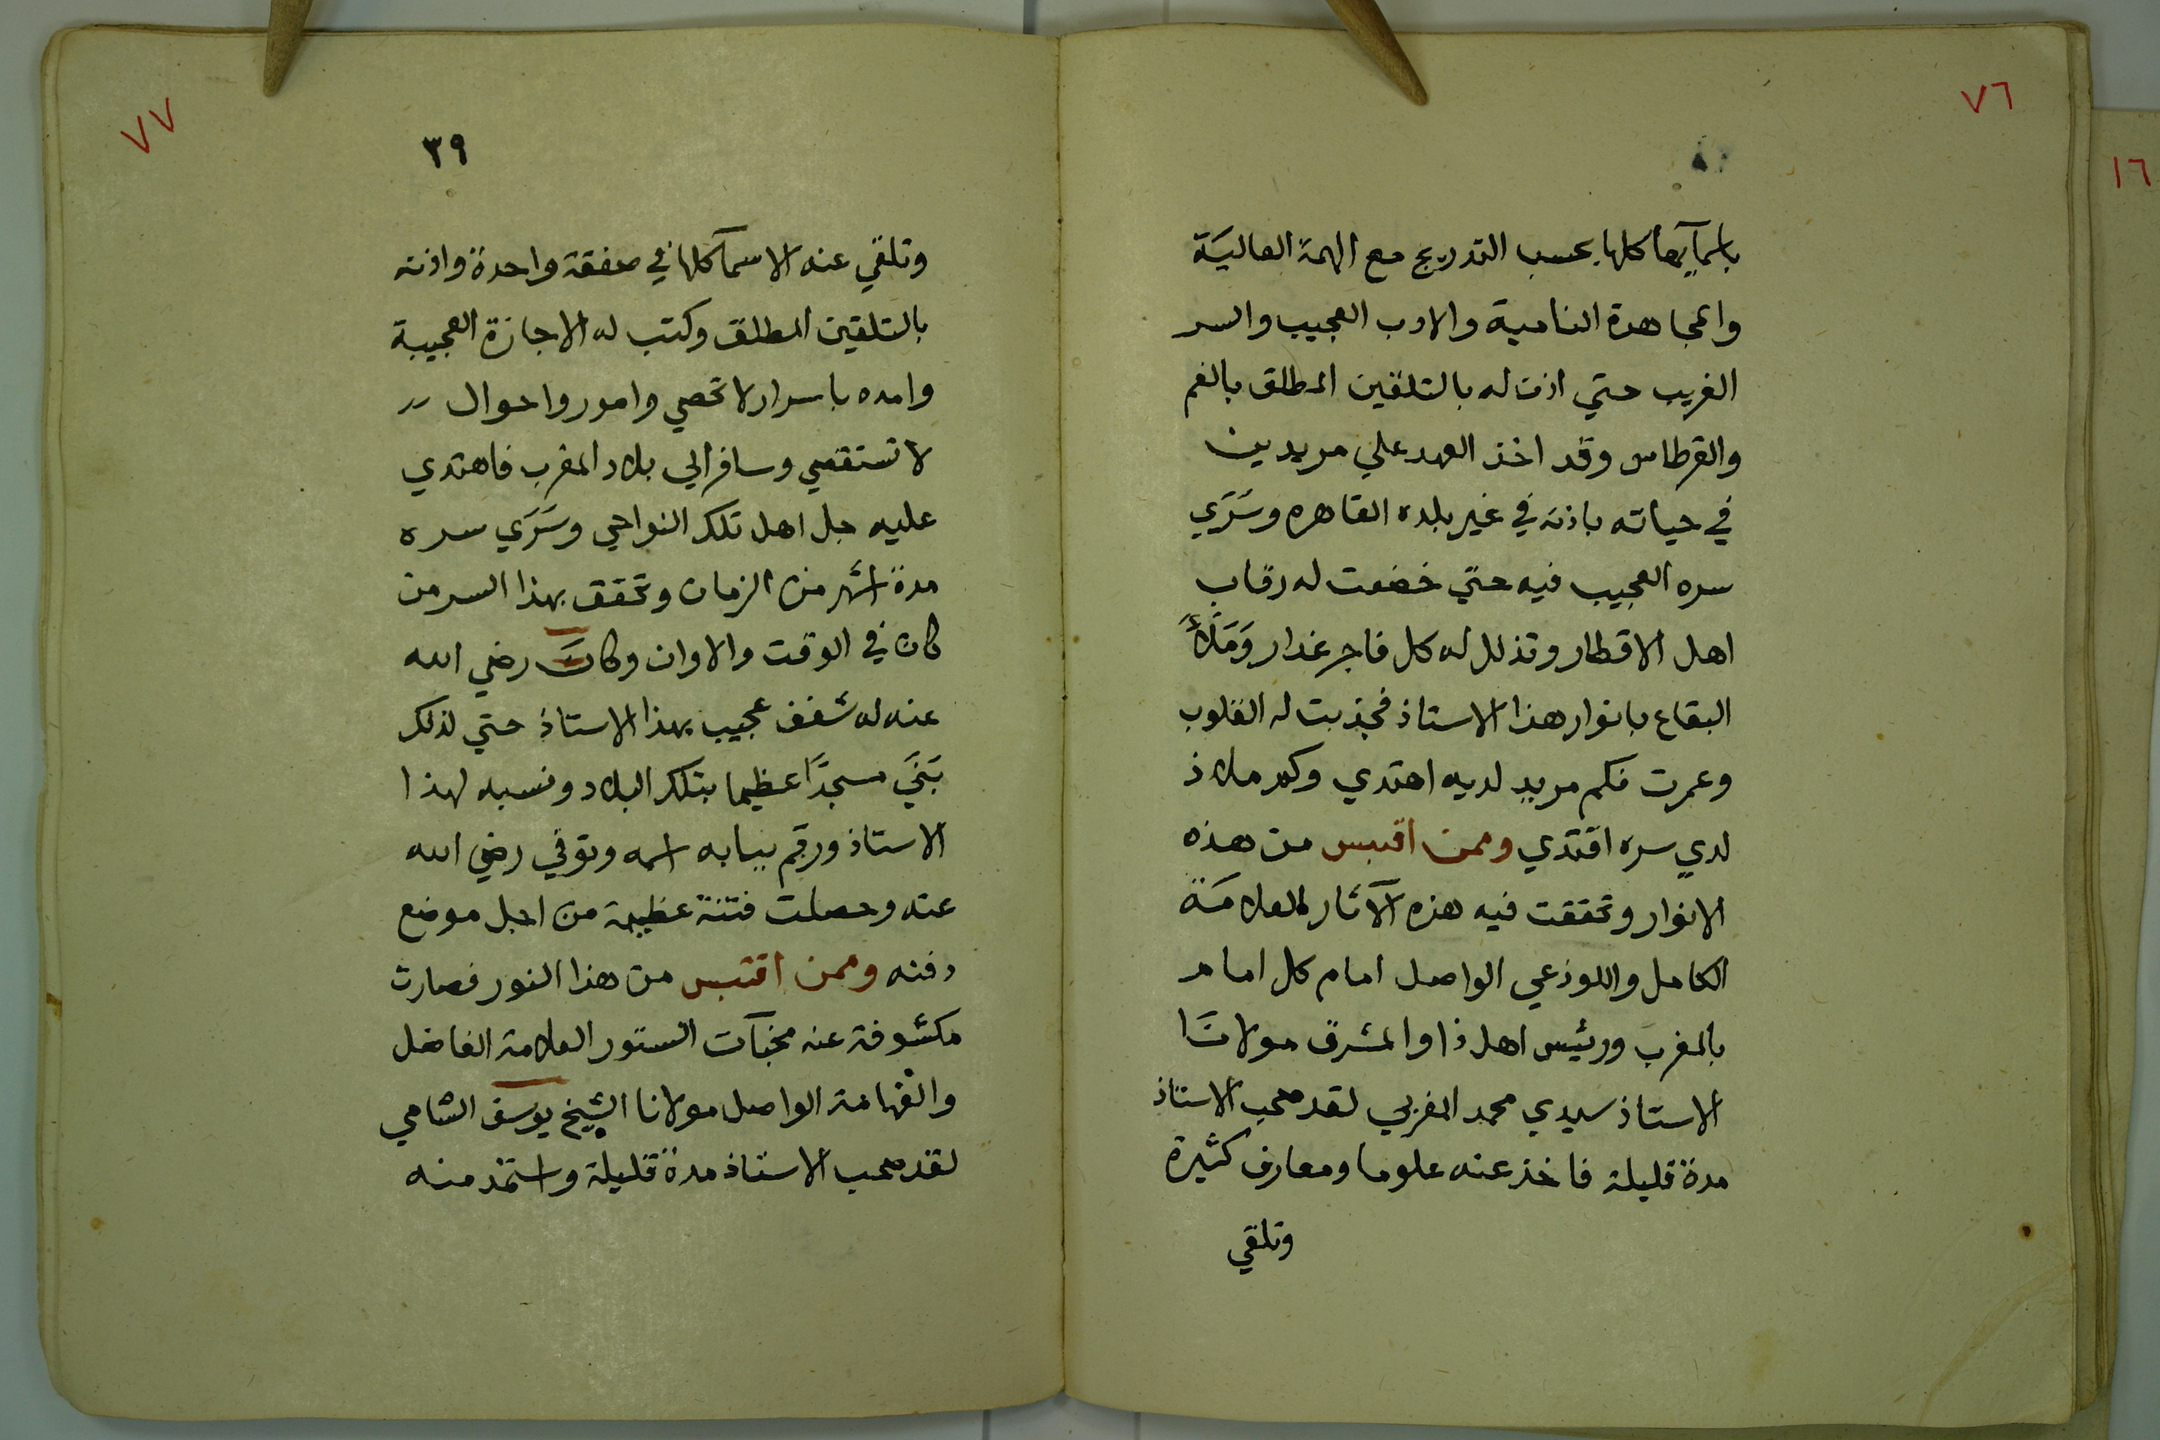 ٧٦
١٦
باسمآيها كلها بحسب التدريج مع الهمة العاليَة
والمجاهدة النامية والادب العجيب والسر
الغريب حتي اذن له بالتلقين المطلق بالفم
والقرطاس وقد اخذ العهد علي مريدين
في حياته باذنه في غير بلده القاهره وسَرَي
سره العجيب فيه حتي خضعت له رقاب
اهل الاقطار وتذلل له كل فاجر غدار وَمَلَأَ
البقاع بانوار هذا الاستاذ فجذبت له القلوب
وعمرت فكم مريد لديه اهتدي وكم ملاذ
لدي سره اقتدي وممن اقتبس من هذه
الانوار وتحققت فيه هذه الآثار العلامَة
الكامل واللوذعي الواصل امام كل امام
بالمغرب ورئيس اهل ذا والمشرق مولانَا
الاستاذ سيدي محمد المغربي لقد صحب الاستاذ
مدة قليلة فاخذ عنه علوما ومعارف كثيرة
وتلقي
٧٧
٣٩
وتلقي عنه الاسمآ كلها في صفقة واحدة واذنه
بالتلقين المطلق وكتب له الاجازة العجيبة
وامده باسرار لا تحصي وامور واحوال
لا تستقصي وسافر الي بلاد المغرب فاهتدي
عليه جل اهل تلك النواحي وسَرَي سره
مدة اشهر من الزمان وتحقق بهذا السر من
كان في الوقت والاوان وكانَ رضي الله
عنه له شغف عجيب بهذا الاستاذ حتي لذلك
بَنَيَ مسجدًا عظيما بتلك البلاد ونسبه لهذا
الاستاذ ورقم ببابه اسمه وتوفي رضي الله
عنه وحصلت فتنة عظيمة من اجل موضع
دفنه وممن اقتبس من هذا النور فصارت
مكشوفة عنه مخبآت الستور العلامة الفاضل
والفهامة الواصل مولانا الشيخ يوسف الشامي
لقد صحب الاستاذ مدة قليلة واستمد منه